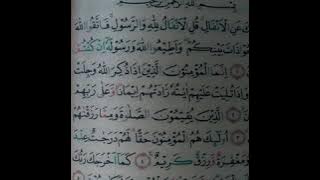 عَنِ الْاَنْفَالِ قُلِ الْاَنْفَالُ لِلّٰهِ وَالرَّسُوْلِ فَاتَّقُوا اللّٰهَ
ذَاتَ بَيْنِكُمْ وَاَطِيْعُوا اللّٰهَ وَرَسُوْلَهٗٓ اِنْ كُنْتُمْ
اِنَّمَا الْمُؤْمِنُوْنَ الَّذِيْنَ اِذَا ذُكِرَ اللّٰهُ وَجِلَتْ
وَاِذَا تُلِيَتْ عَلَيْهِمْ اٰيٰتُهٗ زَادَتْهُمْ اِيْمَانًا وَّعَلٰى رَبِّهِمْ
الَّذِيْنَ يُقِيْمُوْنَ الصَّلٰوةَ وَمِمَّا رَزَقْنٰهُمْ
اُولٰۤىِٕكَ هُمُ الْمُؤْمِنُوْنَ حَقًّا لَهُمْ دَرَجٰتٌ عِنْدَ
وَمَغْفِرَةٌ وَّرِزْقٌ كَرِيْمٌ ۝٤ كَمَآ اَخْرَجَكَ رَبُّكَ